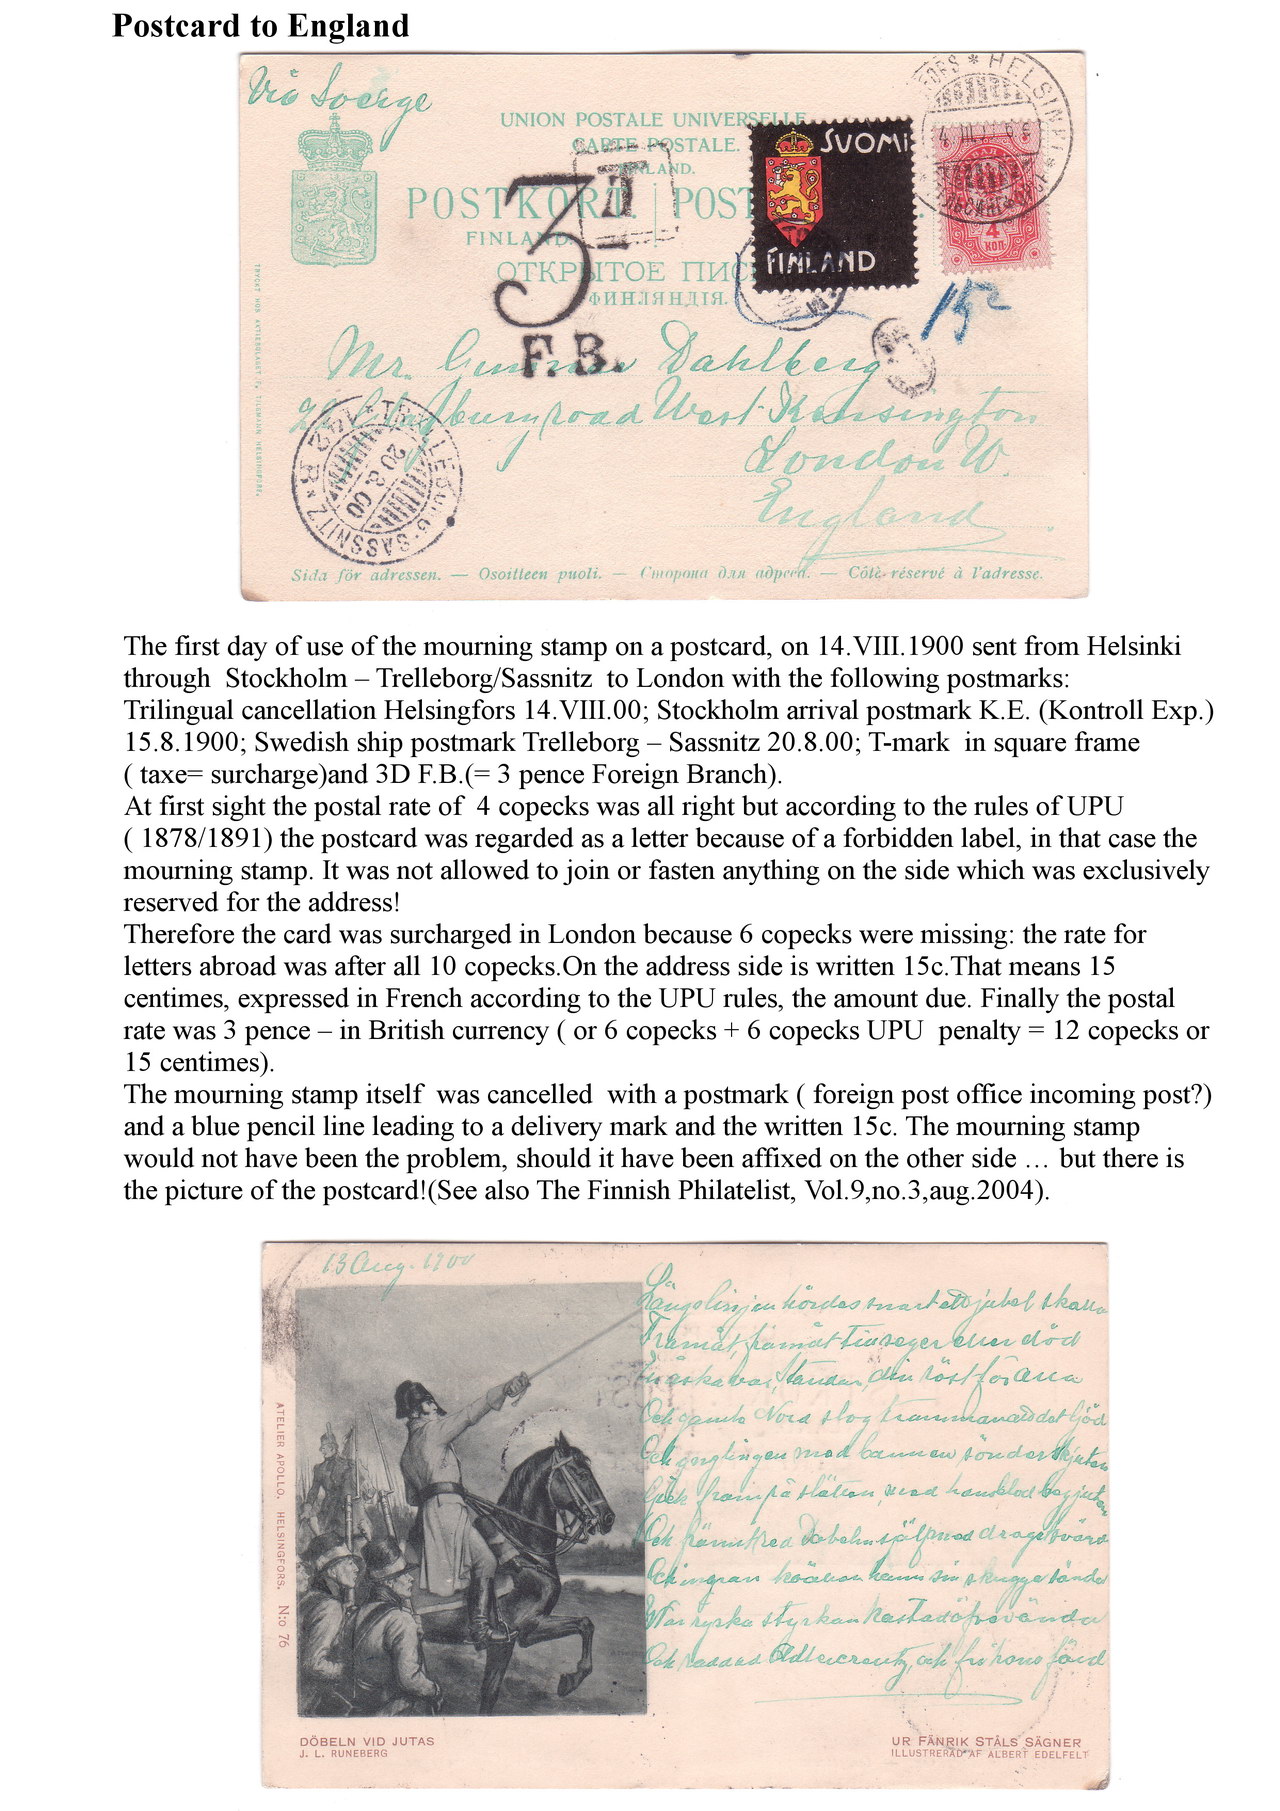 Postcard to England
Via Sverge
HELSINKI
UNION POSTALE UNIVERSELLE
CARTE POSTALE.
SUOMI
POSTKORT. | POST
FINLAND.
ОТКРЫТОЕ ПИС
ФИНЛЯНДІЯ.
FINLAND
4
КОП
T
3D
F.B.
15c
Mr. Gunnar Dahlberg
road West Kensington
London W.
England
TRELLEBORG-SASSNITZ
20 8 00
Sida för adressen. — Osoitteen puoli. — Сторона для адреса. — Côté réservé à l'adresse.
The first day of use of the mourning stamp on a postcard, on 14.VIII.1900 sent from Helsinki
through Stockholm – Trelleborg/Sassnitz to London with the following postmarks:
Trilingual cancellation Helsingfors 14.VIII.00; Stockholm arrival postmark K.E. (Kontroll Exp.)
15.8.1900; Swedish ship postmark Trelleborg – Sassnitz 20.8.00; T-mark in square frame
( taxe= surcharge)and 3D F.B.(= 3 pence Foreign Branch).
At first sight the postal rate of 4 copecks was all right but according to the rules of UPU
( 1878/1891) the postcard was regarded as a letter because of a forbidden label, in that case the
mourning stamp. It was not allowed to join or fasten anything on the side which was exclusively
reserved for the address!
Therefore the card was surcharged in London because 6 copecks were missing: the rate for
letters abroad was after all 10 copecks.On the address side is written 15c.That means 15
centimes, expressed in French according to the UPU rules, the amount due. Finally the postal
rate was 3 pence – in British currency ( or 6 copecks + 6 copecks UPU penalty = 12 copecks or
15 centimes).
The mourning stamp itself was cancelled with a postmark ( foreign post office incoming post?)
and a blue pencil line leading to a delivery mark and the written 15c. The mourning stamp
would not have been the problem, should it have been affixed on the other side … but there is
the picture of the postcard!(See also The Finnish Philatelist, Vol.9,no.3,aug.2004).
13 Aug. 1900
hördes snart ett jubel skalla
Framåt, framåt till seger eller död
din röst för alla
Och
Och med bannern
Gick fram på slätten, med
Och främst red Döbeln själf med draget svärd
Och ingen
ryska styrkan
Och räddad Adlercreutz, och fri hans färd
ATELIER APOLLO. HELSINGFORS. N:o 76
DÖBELN VID JUTAS
J. L. RUNEBERG
UR FÄNRIK STÅLS SÄGNER
ILLUSTRERAD AF ALBERT EDELFELT